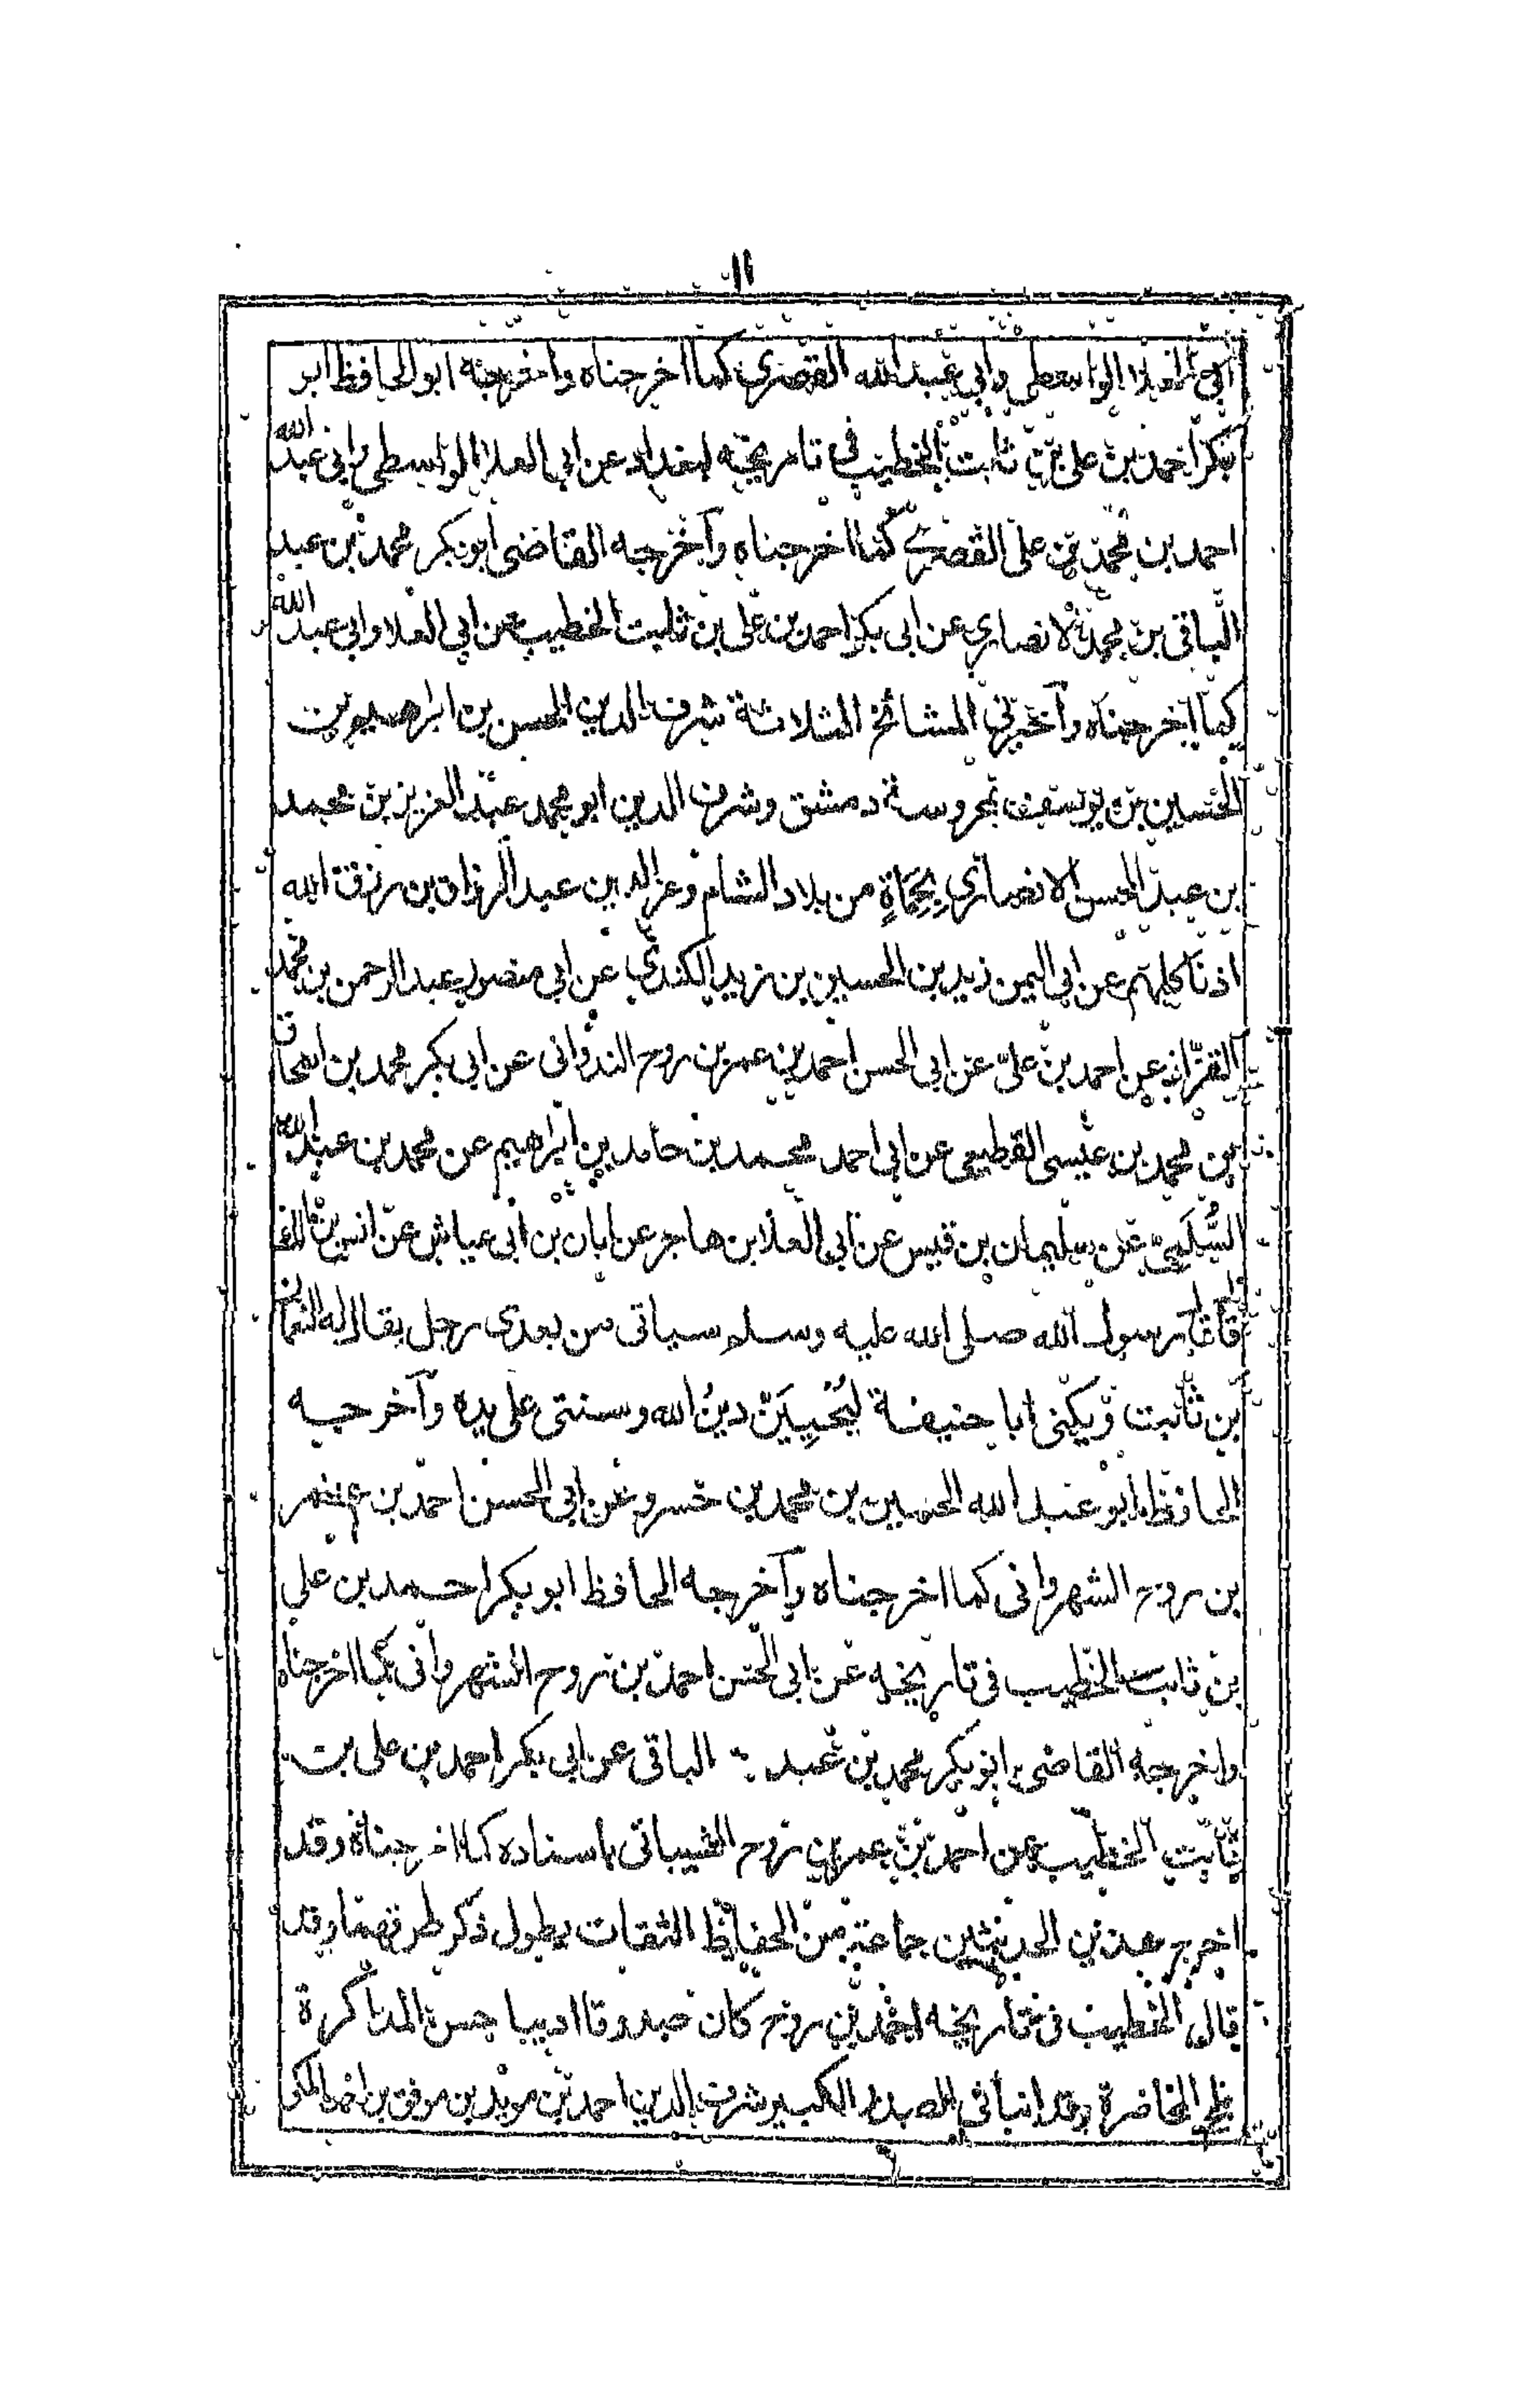 ١١
ابي العلا الواسطي وابي عبدالله القصري كما اخرجناه واخرجه ابو الحافظ ابو
بكر احمد بن على بن ثابت الخطيب في تاريخه لبغداد عن ابي العلا الواسطى وابي عبد الله
احمد بن محمد بن على القصري كما اخرجناه وآخرجه القاضى ابوبكر محمد بن عبد
الباقى بن محمد الانصاري عن ابى بكر احمد بن على بن ثابت الخطيب عن ابي العلا وابي عبد الله
كما اخرجناه وآخبرني المشائخ الثلاثة شرف الدين الحسن بن ابراهيم بن
الحسين بن يوسف بمحروسة دمشق وشرف الدين ابو محمد عبد العزيز بن محمد
بن عبد المحسن الانصاري بحماة من بلاد الشام وعز الدين عبد الرزاق بن رزق الله
اذنا كلهم عن ابي اليمن زيد بن الحسين بن زيد الكندي عن ابي منصور عبد الرحمن بن محمد
القزاز عن احمد بن علىّ عن ابي الحسن احمد بن عمر بن روح النذوانى عن ابى بكر محمد بن اسحاق
بن محمد بن عيسى القطيعى عن ابى احمد محمد بن حامد بن ابراهيم عن محمد بن عبد الله
السُّلَمِىّ عن سليمان بن قيس عن ابي العلا بن هاجر عن ابان بن ابى عياش عن انس بن مالك
قال قال رسول الله صلى الله عليه وسلم سياتى من بعدى رجل يقال له النعمان
بن ثابت ويكنى ابا حنيفة ليُحْيِيَنَّ دينُ الله وسنتى على يده وآخرجه
الحافظ ابو عبد الله الحسين بن محمد بن خسرو عن ابي الحسن احمد بن عمر
بن روح الشهروانى كما اخرجناه وآخرجه الحافظ ابو بكر احمد بن علي
بن ثابت الخطيب فى تاريخه عن ابى الحسن احمد بن روح الشهروانى كما اخرجناه
واخرجه القاضى ابو بكر محمد بن عبد الباقى عن ابي بكر احمد بن على بن
ثابت الخطيب عن احمد بن عمر بن روح الشيبانى باسناده كما اخرجناه وقد
اخرج هذين الحديثين جماعة من الحفاظ الثقات يطول ذكر طرقهما وقد
قال الخطيب فى تاريخه احمد بن روح كان صدوقا اديبا حسن المذاكرة
المحاضرة وقد انبأنى الصدر الكبير شرف الدين احمد بن مويد بن موفق بن احمد المكى